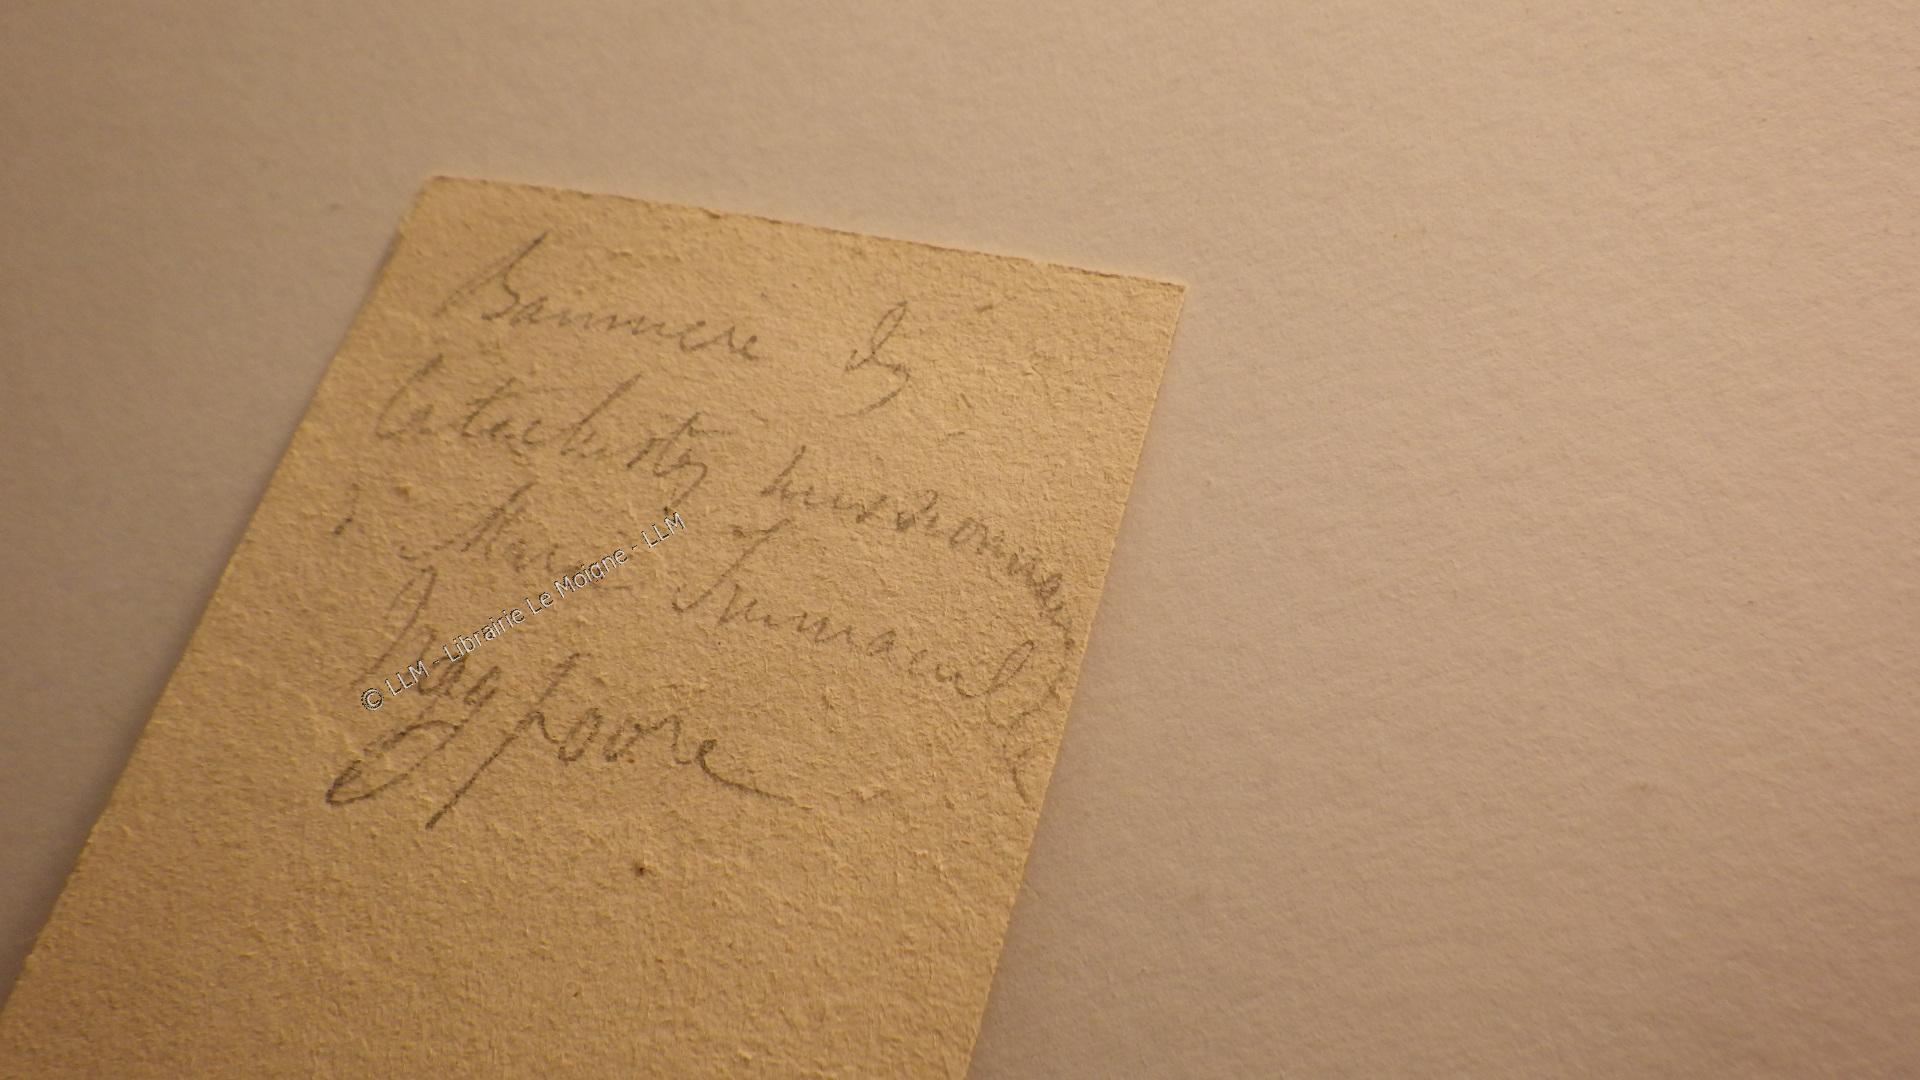 Bannière des
Catéchistes missionnaires
de Marie Immaculée
Nagpoore
© LLM - Librairie Le Moigne - LLM